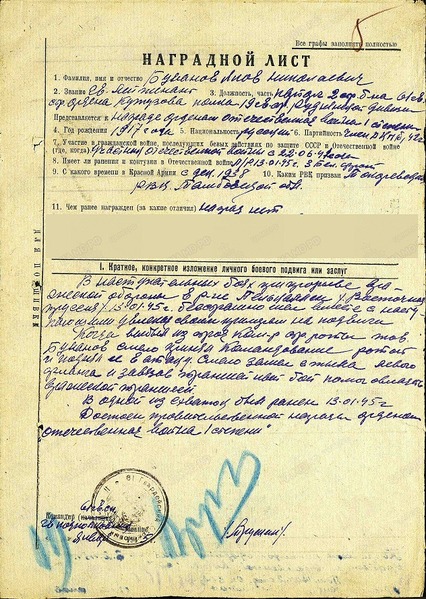 5
Все графы заполнять полностью
НАГРАДНОЙ ЛИСТ
1. Фамилия, имя и отчество Буканов Яков Николаевич
2. Звание Гв. Лейтенант 3. Должность, часть парторг 2 стр. б-на 61 гв.
стр. ордена Кутузова полка 19 гв. стр. Рудненской дивизии
Представляется к награде орденом Отечественная война I степени
4. Год рождения 1917 года 5. Национальность русский 6. Партийность член ВКП(б) 42г.
7. Участие в гражданской войне, последующих боевых действиях по защите СССР и Отечественной войне
(где, когда) участник отечественной войны с 22.06.41 года
8. Имеет ли ранения и контузии в Отечественной войне 13.01.45г. 3 Бел. фронт
9. С какого времени в Красной Армии с 1938 10. Каким РВК призван
РВК Тамбовской обл.
11. Чем ранее награжден (за какие отличия) наград нет
ДЛЯ ПОДШИВКИ
I. Краткое, конкретное изложение личного боевого подвига или заслуг
В наступательных боях при прорыве вра-
жеской обороны в р-не Пилькаллен /Восточная
Пруссия/ 13.01.45г. бесстрашно шел вместе с насту-
пающими увлекая своим примером на подвиги
Когда выбыл из строя ком-р роты тов
Буканов смело принял командование ротой
и повел ее в атаку. Смело
и завязав траншейный бой помог овладеть
вражеской траншеей.
В одной из схваток был ранен 13.01.45г
Достоин правительственной награды орденом
"Отечественная война I степени"
Командир
гв. подполковник